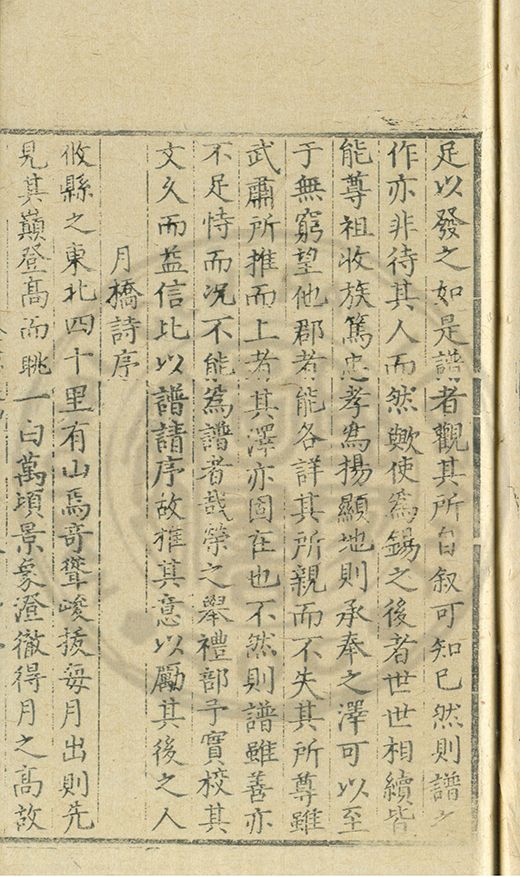 足以發之如是譜者觀其所自叙可知已然則譜之
作亦非待其人而然歟使為錫之後者世世相續皆
能尊祖收族篤忠孝為揚顯地則承奉之澤可以至
于無窮望他郡者能各詳其所親而不失其所尊雖
武肅所推而上者其澤亦固在也不然則譜雖善亦
不足恃而况不能為譜者哉榮之舉禮部予實校其
文久而益信比以譜請序故推其意以勵其後之人
月橋詩序
攸縣之東北四十里有山焉奇聳峻拔每月出則先
見其巔登高而眺一白萬頃景象澄徹得月之高故